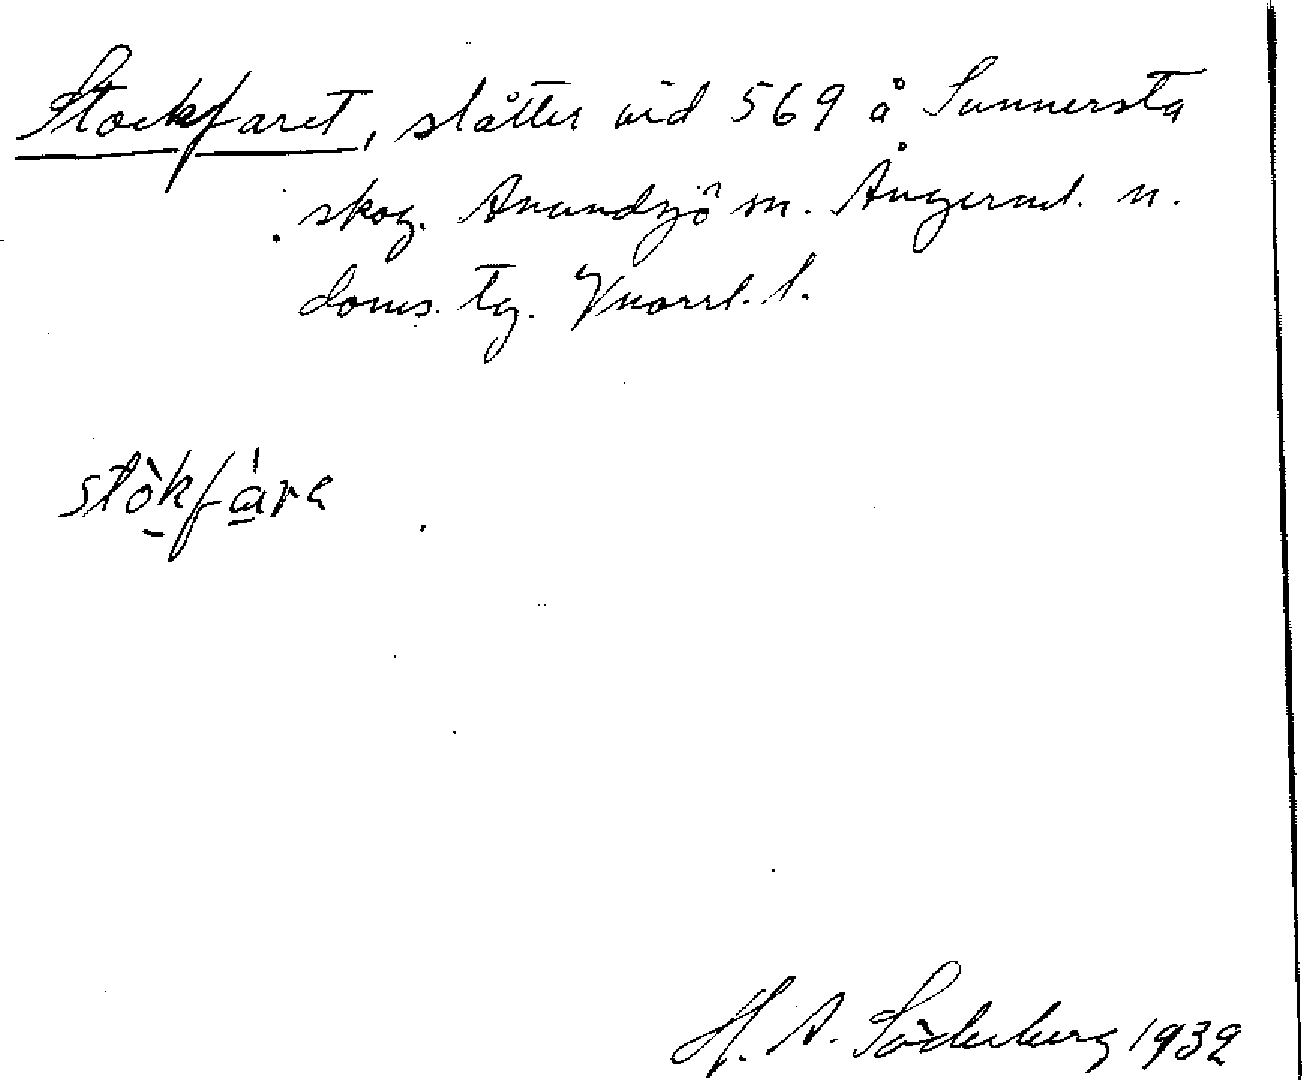 Stockfaret, slåtter vid 569 å Sunnersta
skog. Anundsjö sn. Ångerml. n.
doms. tg. Vnorrl. l.
stòkfàra
H. A. Söderberg 1932